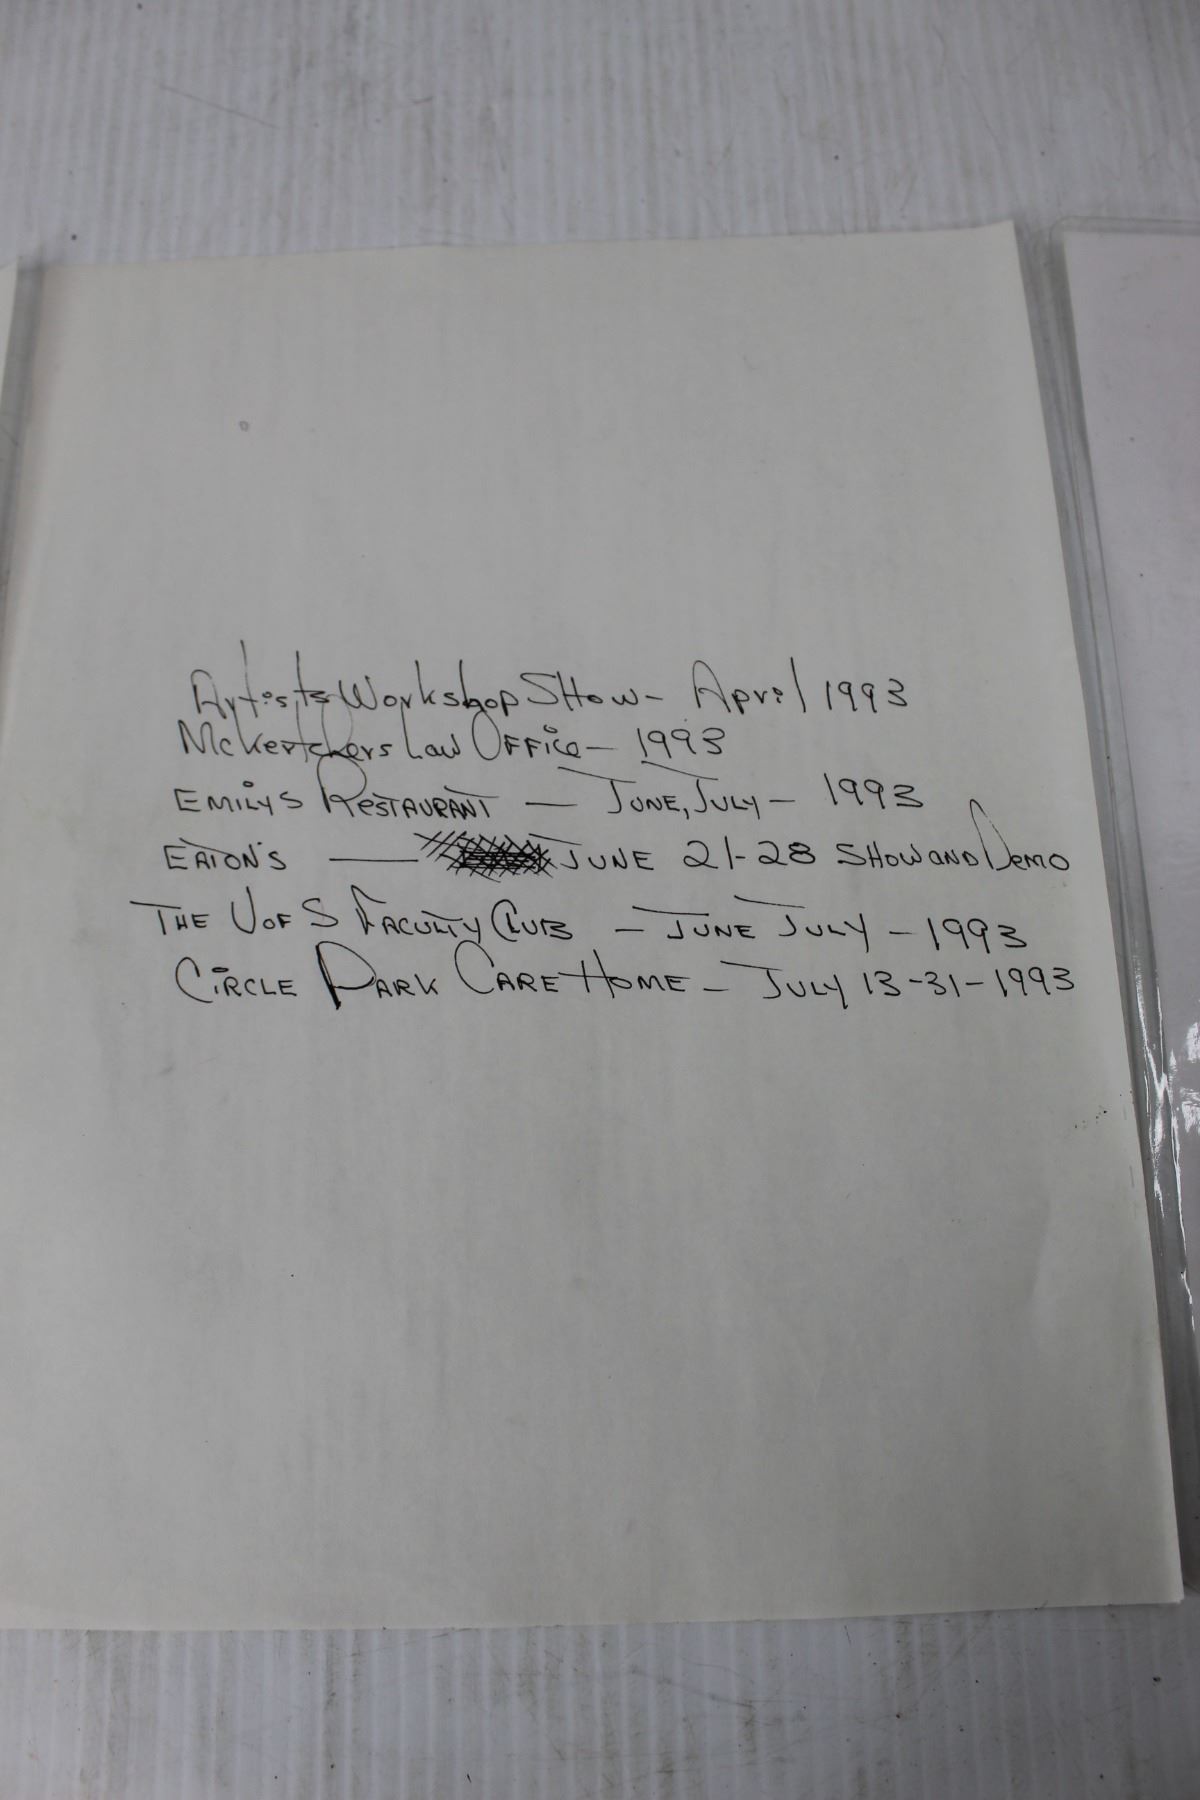 Artists Workshop SHow - April 1993
McKertchers Law OFFice - 1993
EMiLYS RESTAURANT — JUNE, JULY - 1993
EATON'S — JUNE 21-28 SHOW AND DEMO
THE U OF S FACULTY CLUB - JUNE JULY - 1993
CiRCLE PARK CARE HOME - JULY 13-31-1993